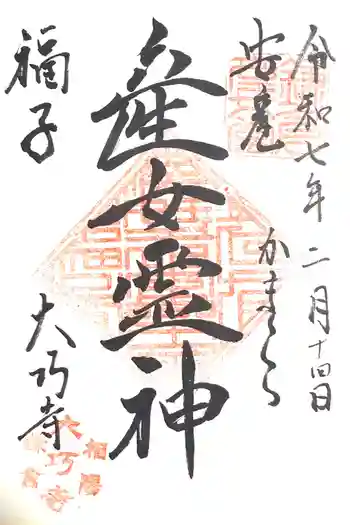 令和七年二月十四日
安産
かまくら
産女霊神
福子
大巧寺
相陽
鎌倉
大巧寺